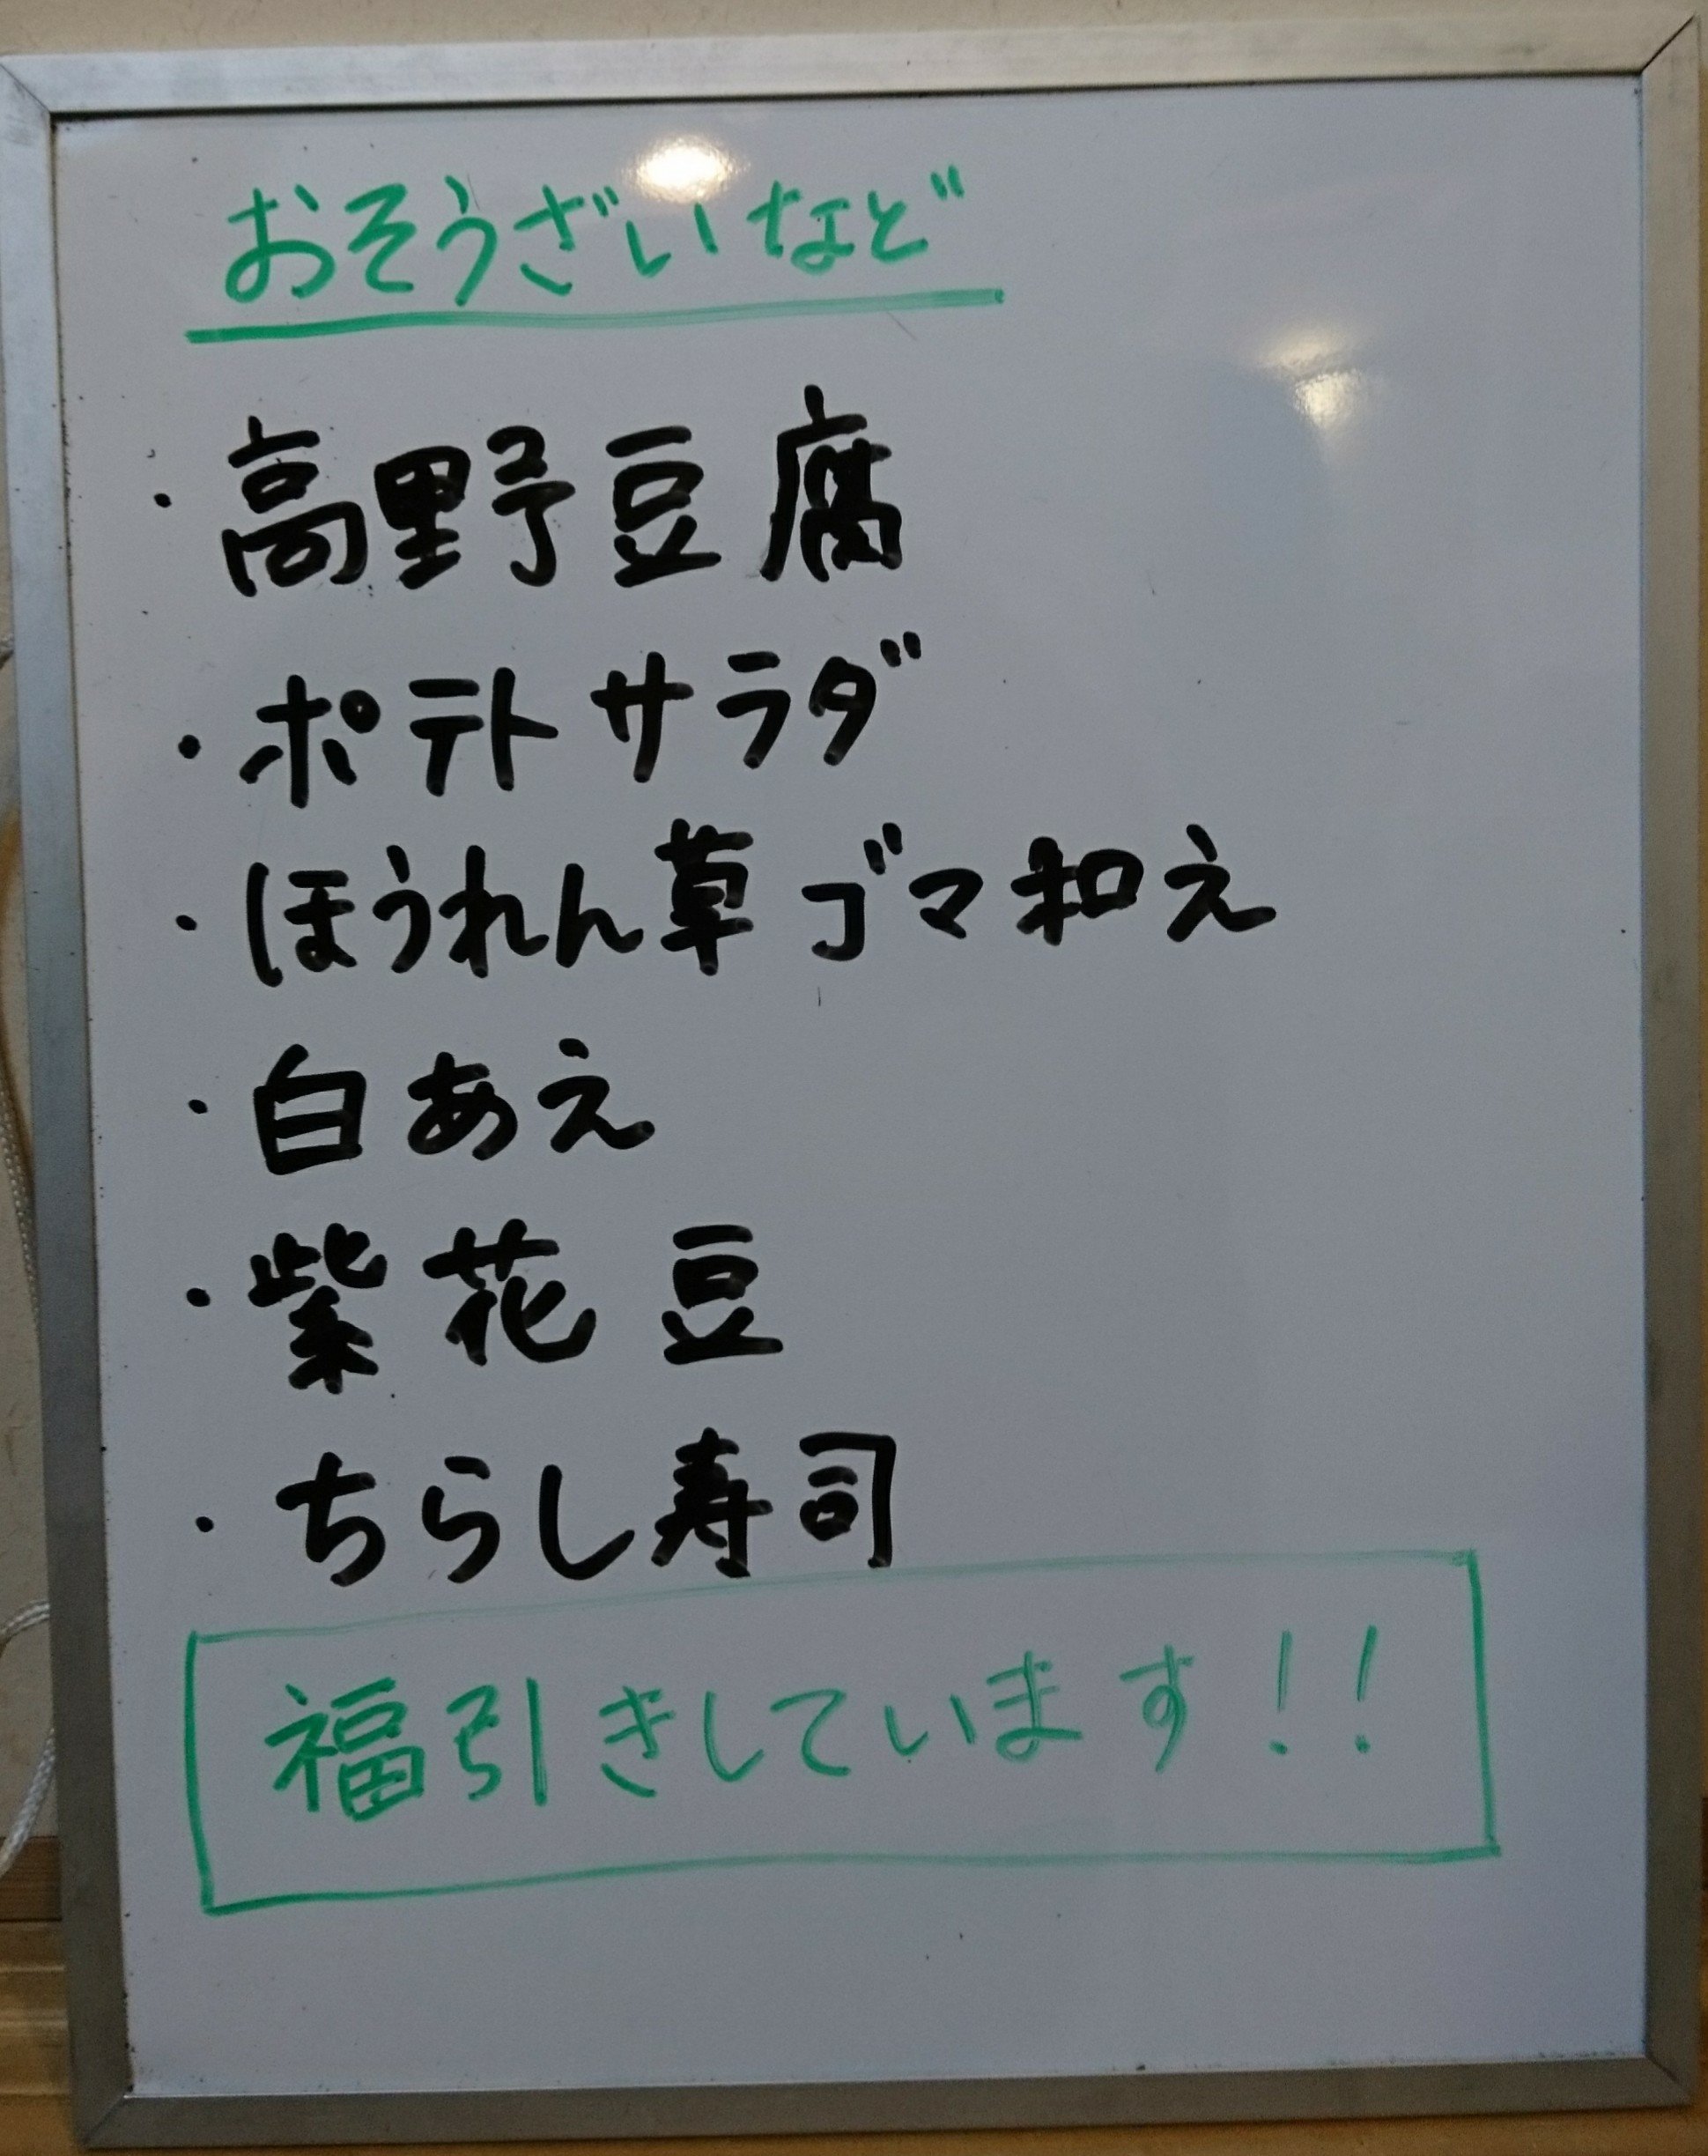 おそうざいなど
・高野豆腐
・ポテトサラダ
・ほうれん草ゴマ和え
・白あえ
・紫花豆
・ちらし寿司
福引きしています!!